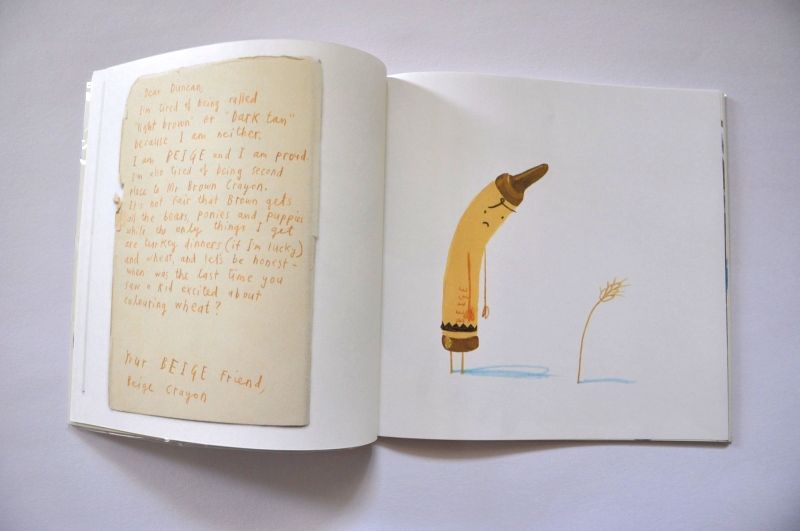 Dear Duncan,
I'm tired of being called
"light brown" or "Dark tan"
because I am neither.
I am BEIGE and I am proud.
I'm also tired of being second
place to Mr Brown Crayon.
It's not fair that Brown gets
all the bears, ponies and puppies
while the only things I get
are turkey dinners (if I'm lucky)
and wheat, and let's be honest -
when was the last time you
saw a kid excited about
colouring wheat?
Your BEIGE friend,
Beige Crayon
BEIGE